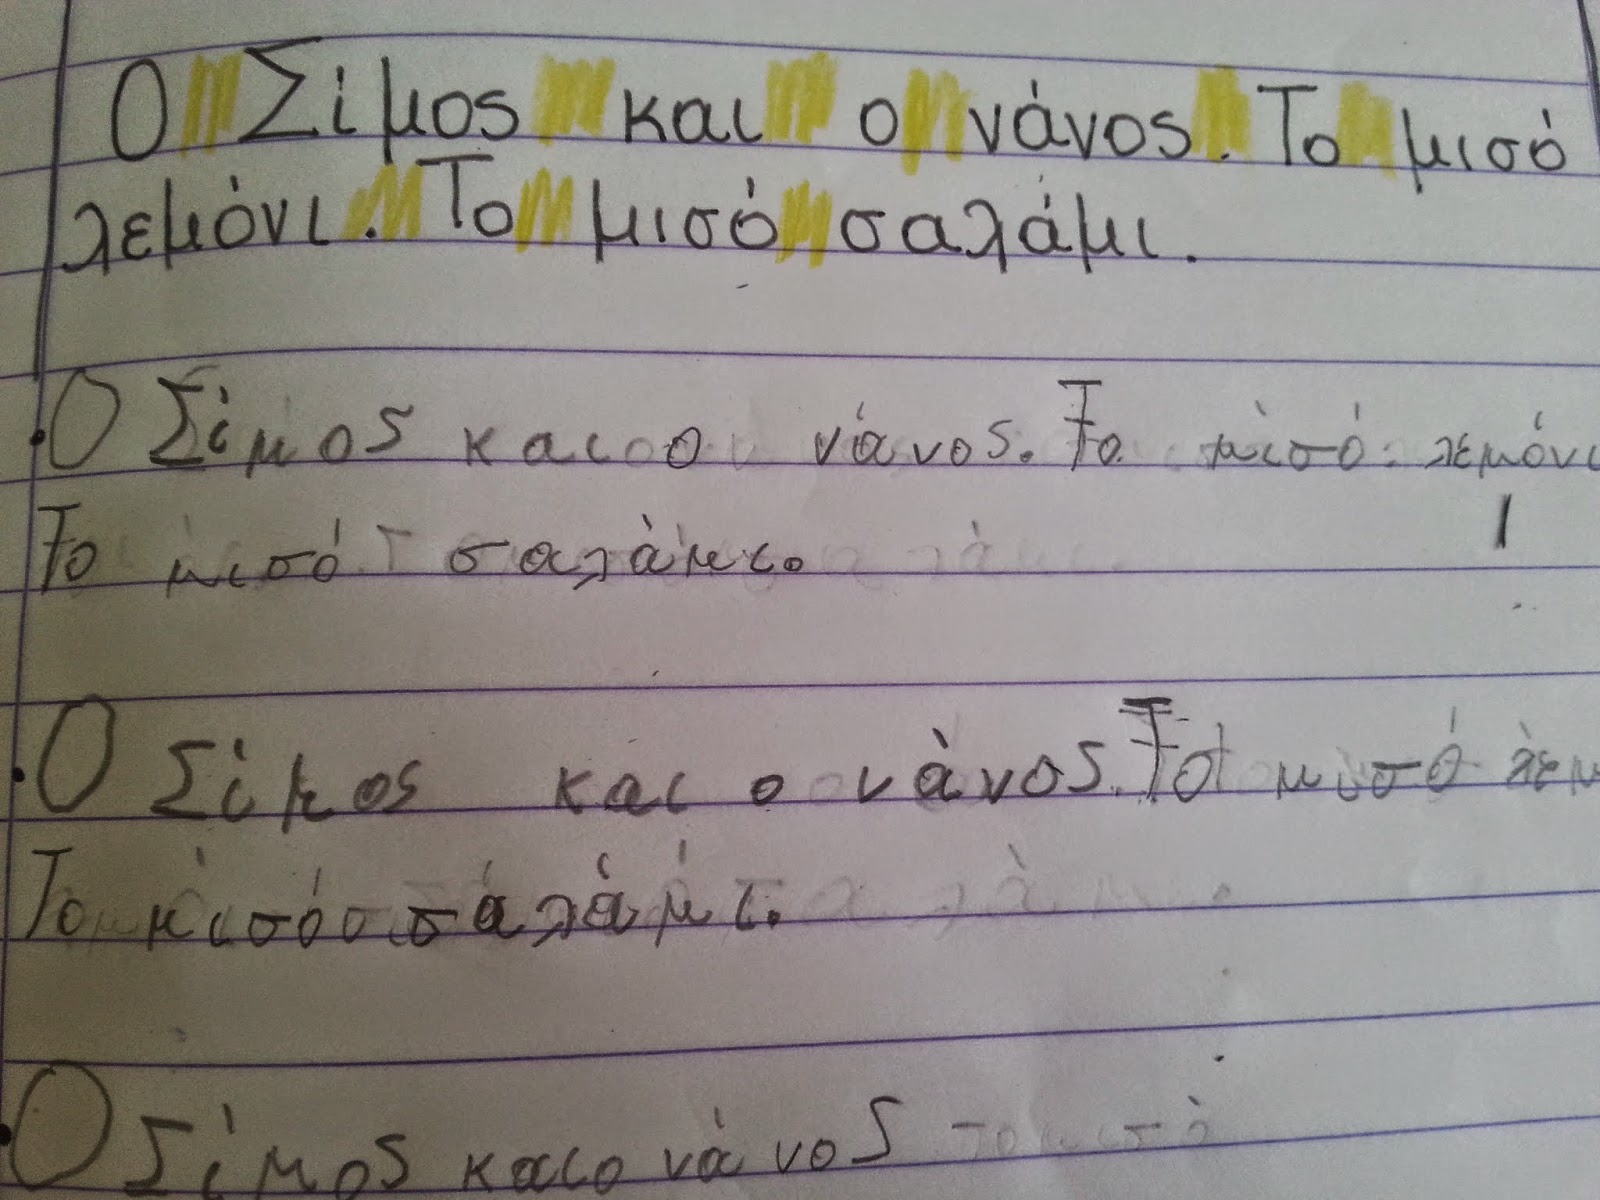 Ο Σίμος και ο νάνος. Το μισό
λεμόνι. Το μισό σαλάμι.
Ο Σίμος και ο νάνος. Το μισό λεμόνι
Το μισό σαλάμι.
Ο Σίμος και ο νάνος. Το μισό λεμ
Το μισό σάλάμι.
Ο Σίμος και ο νάνος